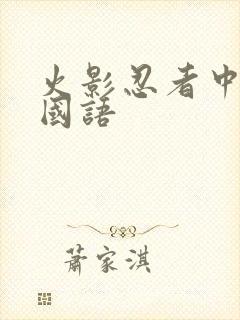 火影忍者中
國語
蕭家淇